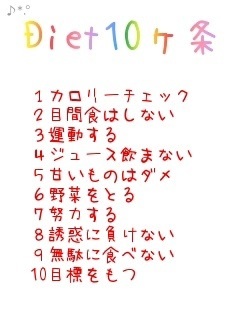 ♪*.°
Diet10ヶ条
1カロリーチェック
2目間食はしない
3運動する
4ジュース飲まない
5甘いものはダメ
6野菜をとる
7努力する
8誘惑に負けない
9無駄に食べない
10目標をもつ